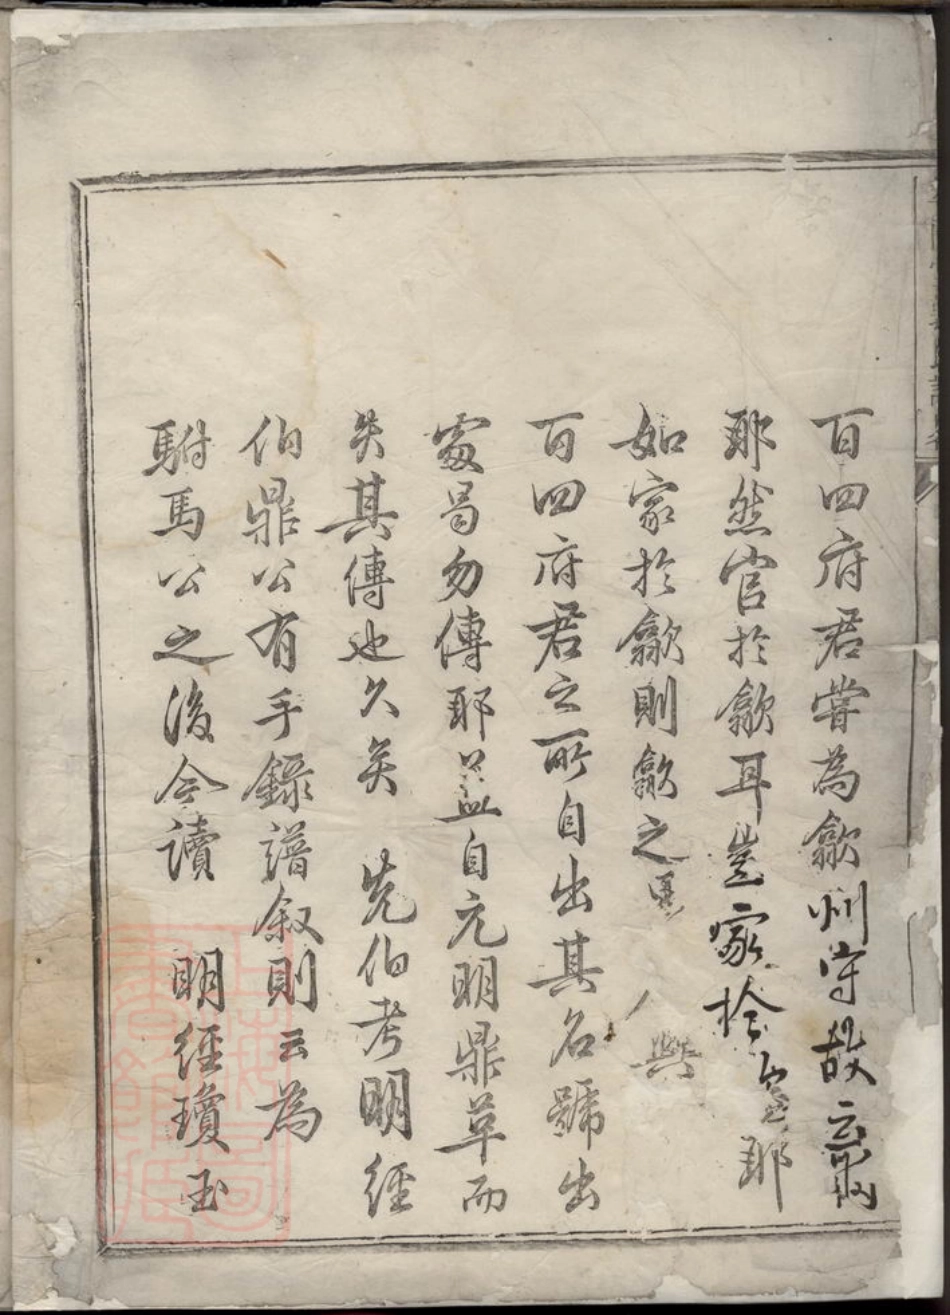 百四府君嘗為歙州守故云爾
耶然官於歙耳豈家於 耶
如家於歙則歙之 與
百四府君之所自出其名號出
處曷勿傳耶蓋自元明鼎革而
失其傳也久矣 先伯考明經
伯鼎公有手錄譜叙則云為
駙馬公之後今讀 明經瓊玉